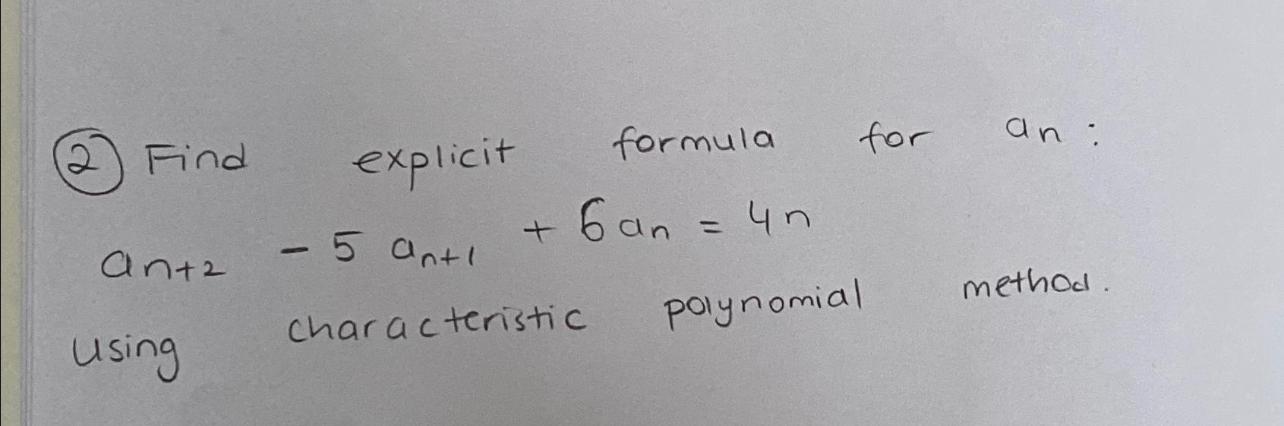 ② Find explicit formula for an :
an+2 - 5 an+1 + 6 an = 4n
using characteristic polynomial method.